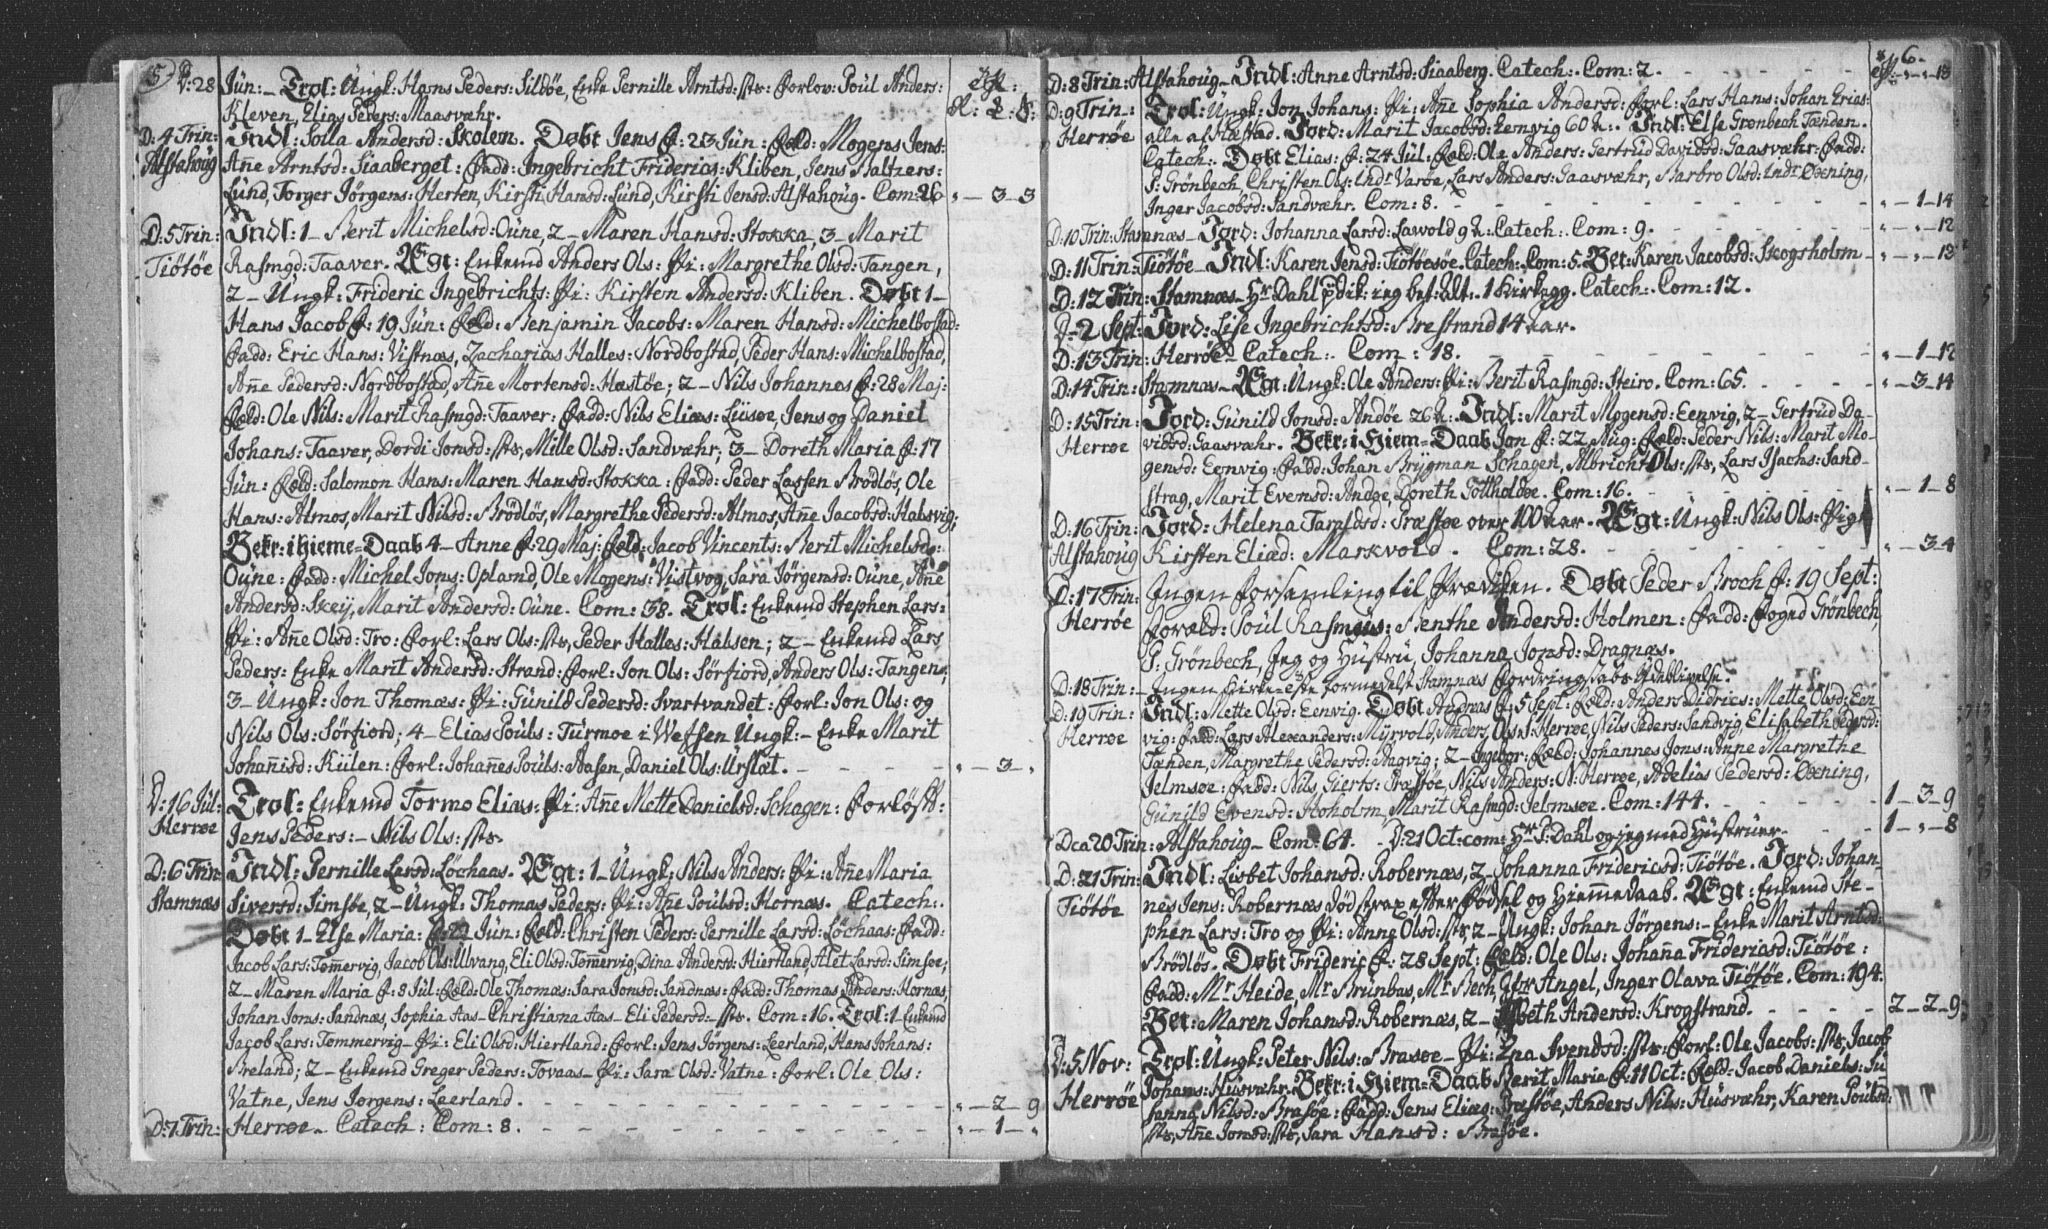 5
D: 28 Jun: Trol: Ungk: Hans Peders: Silbøe, Enke Pernille Arntsd: sts: Forlov: Poul Anders:
Kleven, Elias Peders: Maasvæhr.
D: 4 Trin: Indl: Solla Andersd: Skolem. Døbt Jens f: 23 Jun: Føld: Mogens Jens:
Alstahoug Anne Arntsd: Siaaberget: Fadd: Ingebricht Friderics: Kliben, Jens Baltzers:
Lund, Torger Jørgens: Herten, Kirsti Hansd: Lund, Kirsti Jensd: Alstahoug. Com: 26 " - 3 - 3
D: 5 Trin: Indl: 1 - Berit Michelsd: Oune, 2 - Maren Hansd: Stokka, 3 - Marit
Tiøtøe Rasmgd: Taaver. Ægt: Enkemd Anders Ols: Pi: Margrethe Olsd: Tangen,
2 - Ungk: Frideric Ingebrichts: Pi: Kirsten Andersd: Kliben. Døbt 1 -
Hans Jacob f: 19 Jun: Føld: Benjamin Jacobs: Maren Hansd: Michelbostad:
Fadd: Eric Hans: Vistnæs, Zacharias Halles: Nordbostad, Peder Hans: Michelbostad,
Anne Pedersd: Nordbostad, Anne Mortensd: Hæstøe; 2 - Nils Johannes f: 28 Maj:
Føld: Ole Nils: Marit Rasmgd: Taaver: Fadd: Nils Elias: Lusøe, Jens og Daniel
Johans: Taaver, Dordi Jonsd: sts, Mille Olsd: Sandvæhr; 3 - Doreth Maria f: 17
Jun: Føld: Salomon Hans: Maren Hansd: Stokka: Fadd: Peder Lassen Brødløs, Ole
Hans: Almos, Marit Nilsd: Brødløs, Margrethe Pedersd: Almos, Anne Jacobsd: Halsvig;
Bekr: i hieme-Daab 4 - Anne f: 29 Maj: Føld: Jacob Vincents: Berit Michelsd:
Oune: Fadd: Michel Jons: Opland, Ole Mogens: Vistvog, Sara Jørgensd: Oune, Anne
Andersd: Skeij, Marit Andersd: Oune. Com: 38. Trol: Enkemd Stephen Lars:
Pi: Anne Olsd: Tro: Forl: Lars Ols: sts, Peder Halles: Halsen; 2 - Enkemd Lars
Peders: Enke Marit Andersd: Strand: Forl: Jon Ols: Sørfiord, Anders Ols: Tangen;
3 - Ungk: Jon Thomæs: Pi: Gunild Pedersd: Svartvandet: Forl: Jon Ols: og
Nils Ols: Sørfiord; 4 - Elias Pouls: Turmoe i Vefsen Ungk: - Enke Marit
Johannisd: Kulen: Forl: Johannes Pouls: Aasen, Daniel Ols: Urslæt. " - 3 - "
D: 16 Jul: Trol: Enkemd Tormo Elias: Pi: Anne Mette Danielsd: Schagen: Forløft:
Herrøe Jens Peders: - Nils Ols: sts.
D: 6 Trin: Indl: Pernille Larsd: Løchaas. Ægt: 1 - Ungk: Nils Anders: Pi: Anne Maria
Stamnæs Siversd: Simsøe, 2 - Ungk: Thomas Peders: Pi: Anne Poulsd: Hornæs. Catech:
Døbt 1 - Else Maria: f: 29 Jun: Føld: Christen Peders: Pernille Larsd: Løchaas: Fadd:
Jacob Lars: Tømmervig, Jacob Ols: Ulvang, Eli Olsd: Tømmervig, Dina Andersd: Hiertland, Alet Larsd: Simsøe;
2 - Maren Maria f: 8 Jul: Føld: Ole Thomæs: Sara Jonsd: Sandnæs: Fadd: Thomas Peders: Hornæs,
Johan Jons: Sandnæs, Sophia Aas - Christiana Aas - Eli Pedersd: - sts. Com: 16. Trol: 1 - Enkemd
Jacob Lars: Tømmervig - Pi: Eli Olsd: Hiertland: Forl: Jens Jørgens: Leerland, Hans Johans:
Breland; 2 - Enkemd Greger Peders: Tovaas - Pi: Sara Olsd: Vatne: Forl: Ole Ols:
Vatne, Jens Jørgens: Leerland. " - 2 - 9
D: 7 Trin: Herrøe - Catech: Com: 8. " - 1 - "
6.
D: 8 Trin: Alstahoug - Indl: Anne Arntsd: Siaaberg. Catech: Com: 2. " - " - 13
D: 9 Trin: Trol: Ungk: Jon Johans: Pi: Anne Sophia Andersd: Forl: Lars Hans: Johan Erias:
Herrøe alle af Hæstad. Jord: Marit Jacobsd: Eenvig 60 A. Indl: Else Grønbech Tænden.
Catech: Døbt Elias: f: 24 Jul: Føld: Ole Anders: Gertrud Davidsd: Gaasvæhr: Fadd:
P: Grønbech, Christen Ols: Indr Varøe, Lars Anders: Gaasvæhr, Barbro Olsd: Indr Øxning,
Inger Jacobsd: Sandvæhr. Com: 8. " - 1 - 14
D: 10 Trin: Stamnæs - Jord: Johanna Larsd: Lawold 9 A: Catech: Com: 9. " - " - 12
D: 11 Trin: Tiøtøe - Indl: Karen Jensd: Tiøtøesøe. Catech: Com: 5. Bet: Karen Jacobsd: Skogsholm " - " - 13
D: 12 Trin: Stamnæs - Hr Dahl pdik: ieg bet: Alt: 1 Kirkegg. Catech: Com: 12.
D - 2 Sept: Jord: Lise Ingebrichtsd: Brestrand 14 Aar.
D: 13 Trin: Herrøe - Catech: Com: 18. " - 1 - 12
D: 14 Trin: Stamnæs - Ægt: Ungk: Ole Anders: Pi: Berit Rasmgd: Steiro. Com: 65. " - 3 - 14
D: 15 Trin: Jord: Gunild Jonsd: Andøe 26 A: Indl: Marit Mogensd: Eenvig, 2 - Gertrud Da-
Herrøe vidsd: Gaasvæhr. Bekr: i Hiem-Daab Jon f: 22 Aug: Føld: Peder Nils: Marit Mo-
gensd: Eenvig: Fadd: Johan Brygman Schagen, Albricht Ols: sts, Lars Isachs: Sand-
strag, Marit Evensd: Andøe, Doreth Tottholdøe. Com: 16. " - 1 - 8
D: 16 Trin: Jord: Helena Taraldsd: Præstøe over 100 Aar. Ægt: Ungk: Nils Ols: Pige
Alstahoug Kirsten Eliæd: Markvold. Com: 28. " - 3 4
D: 17 Trin: Ingen Forsamling til Prædiken. Døbt Peder Broch f: 19 Sept:
Herrøe Foræld: Poul Rasmgus: Benthe Andersd: Holmen: Fadd: Fogd Grønbech,
P: Grønbech, Jeg og Hustru, Johanna Jonsd: Dragnæs.
D: 18 Trin: - Ingen Kirke-tieste formedelst Stamnæs Fordringsskabs Udeblivelse.
D: 19 Trin: Indl: Mette Olsd: Eenvig. Døbt Andreas f: 5 Sept: Føld: Anders Didrics: Mette Olsd: Een-
Herrøe vig: Fadd: Lars Alexanders: Myrvold, Anders Ols: S: Herrøe, Nils Peders: Sandvig, Elisabeth Pedersd:
Tænden, Margrethe Pedersd: Aagvig; 2 - Ingebor: Føld: Johannes Jons: Anne Margrethe
Jelmsøe: Fadd: Nils Gierts: Præstøe, Nils Anders: N: Herrøe, Adelias Pedersd: Øxning,
Gunild Evensd: Aoholm, Marit Rasmgd: Jelmsøe. Com: 144. 1 - 3 - 9
Dca 20 Trin: Alstahoug - Com: 64. D: 21 Oct: com: Hr P: Dahl og jeg med Hustruer. 1 - " - 8
D: 21 Trin: Indl: Lisbet Johansd: Robernæs, 2 - Johanna Fridericsd: Tiøtøe. Jord: Johan-
Tiøtøe nes Jens: Robernæs død strax efter Fødsel og Hiemmedaab. Ægt: Enkemd Ste-
phen Lars: Tro og Pi: Anne Olsd: sts, 2 - Ungk: Johan Jørgens: - Enke Marit Arntsd:
Brødløs. Døbt Frideric f: 28 Sept: Føld: Ole Ols: Johanna Fridericsd: Tiøtøe:
Fadd: Mr Heide, Mr Brunbas, Mr Bech, Gbr Angel, Inger Olava Tiøtøe. Com: 194.
Bet: Maren Johansd: Robernæs, 2 - Elsbeth Andersd: Krogstrand. 2 - 2 - 9
D: 5 Nov: Trol: Ungk: Peter Nils: Brasøe - Pi: Ana Svendsd: sts: Forl: Ole Jacobs: sts, Jacob
Herrøe Johans: Husvæhr. Bekr: i Hiem-Daab Berit Maria f: 11 Oct: Føld: Jacob Daniels: Su-
sanna Nilsd: Brasøe: Fadd: Jens Eliæs: Præstøe, Anders Nils: Husvæhr, Karen Poulsd:
sts, Anne Jonsd: sts, Sara Hansd: Brasøe.